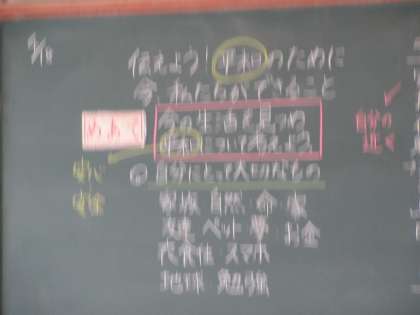 9/18
伝えよう!平和のために
今、わたしたちができること
めあて
今の生活を見つめ
平和について考えよう
自分にとって大切なもの
安心
安全
家族 自然 命 家
友達 ペット 夢 お金
代表性 スマホ
地球 勉強
自分の